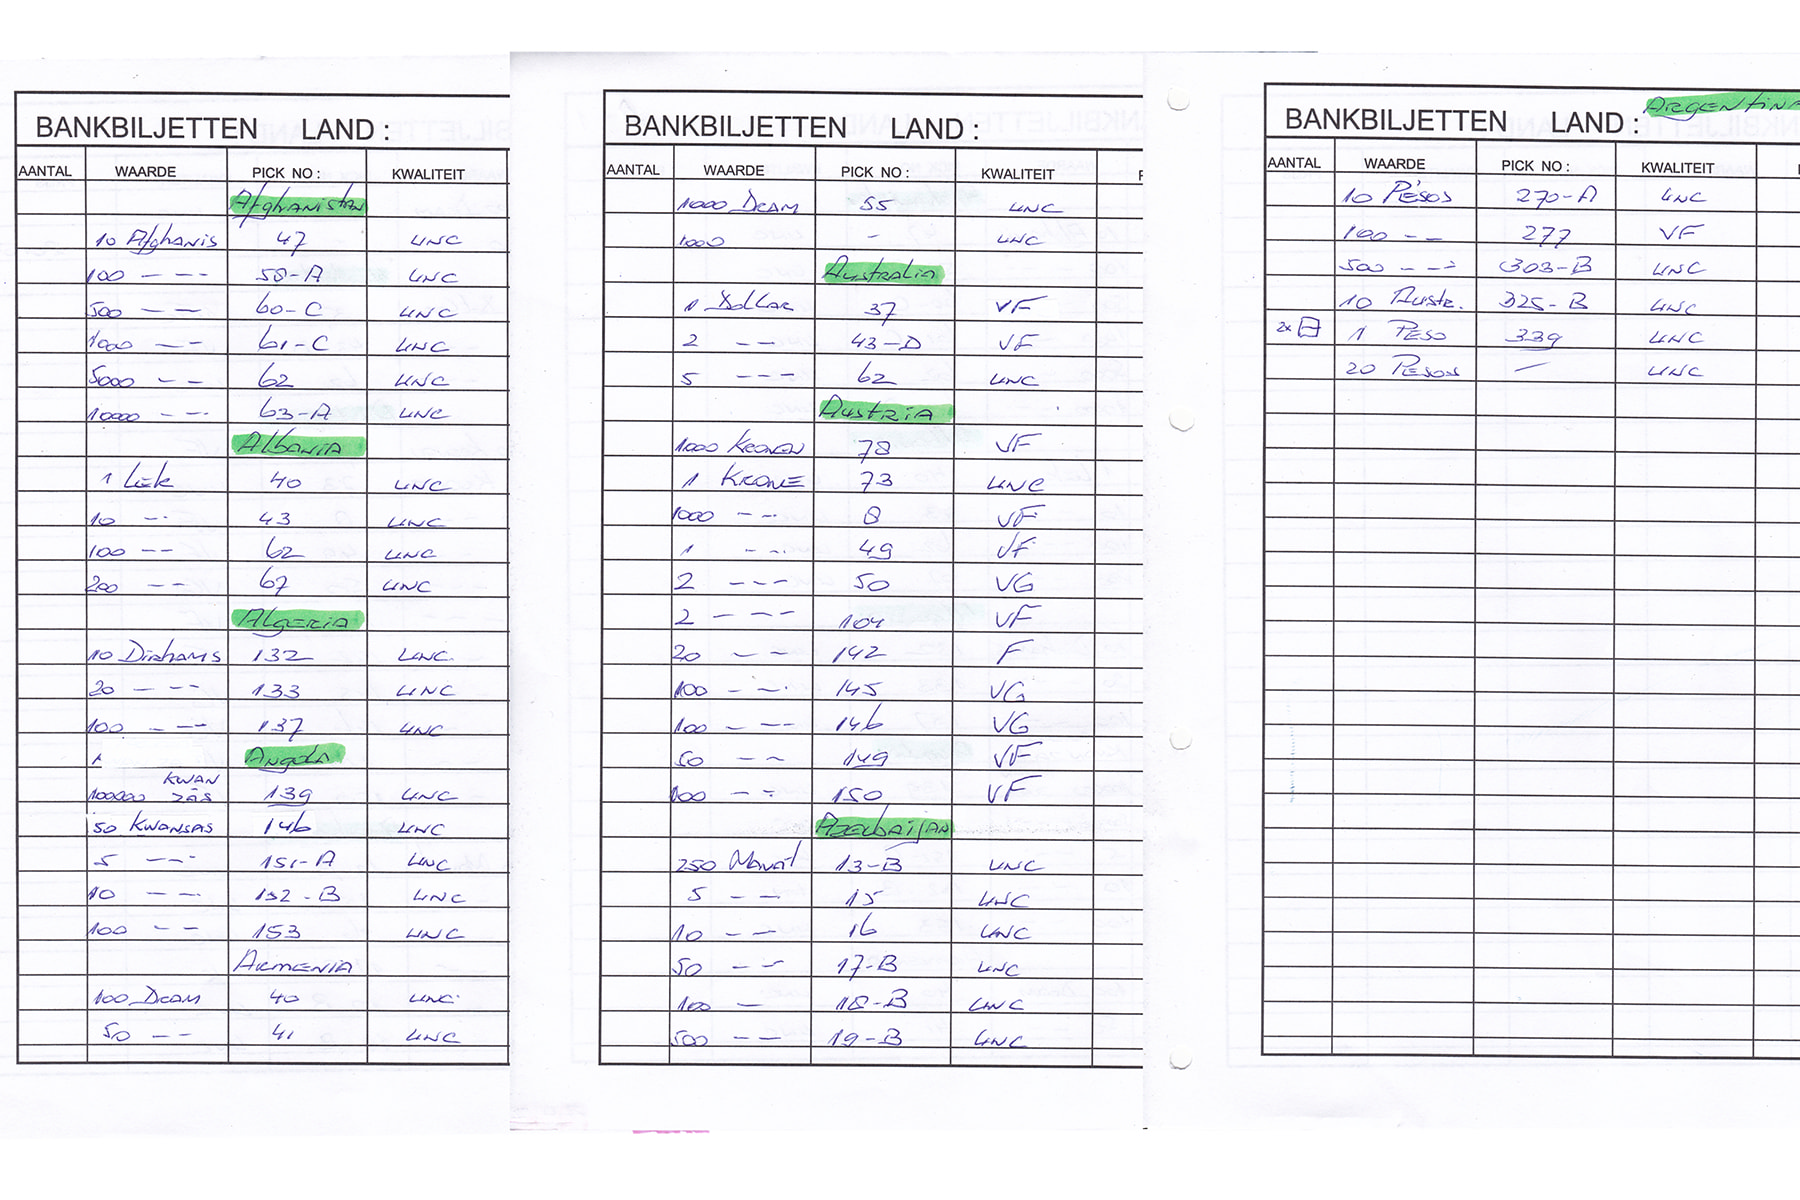 BANKBILJETTEN LAND :
AANTAL WAARDE PICK NO : KWALITEIT
Afghanistan
10 Afghanis 47 UNC
100 — — — 58-A UNC
500 — — 60-C UNC
1000 — — 61-C UNC
5000 — — 62 UNC
10000 — — 63-A UNC
Albania
1 Lek 40 UNC
10 — 43 UNC
100 — — 62 UNC
200 — — 67 UNC
Algeria
10 Dirhams 132 UNC
20 — — — 133 UNC
100 — — — 137 UNC
1 Angola
KWAN
100000 ZAS 139 UNC
50 KWANSAS 146 UNC
5 — — 151-A UNC
10 — — 152-B UNC
100 — — 153 UNC
ARMENIA
100 Dram 40 UNC
50 — — 41 UNC
BANKBILJETTEN LAND :
AANTAL WAARDE PICK NO : KWALITEIT
1000 Dram 55 UNC
1000 - UNC
Australia
1 Dollar 37 VF
2 — — 43-D VF
5 — — — 62 UNC
Austria
1000 KRONEN 78 VF
1 KRONE 73 UNC
1000 — — 8 VF
1 — — 49 VF
2 — — — 50 VG
2 — — — 104 VF
20 — — 142 F
100 — — 145 VG
100 — — — 146 VG
50 — — 149 VF
100 — — 150 VF
Azerbaijan
250 Manat 13-B UNC
5 — — 15 UNC
10 — — 16 UNC
50 — — 17-B UNC
100 — 18-B UNC
500 — — 19-B UNC
BANKBILJETTEN LAND : ARGENTINA
AANTAL WAARDE PICK NO : KWALITEIT
10 Pésos 270-A UNC
100 — — 277 VF
500 — — 303-B UNC
10 Austr. 325-B UNC
2x 1 PESO 339 UNC
20 PESOS — UNC